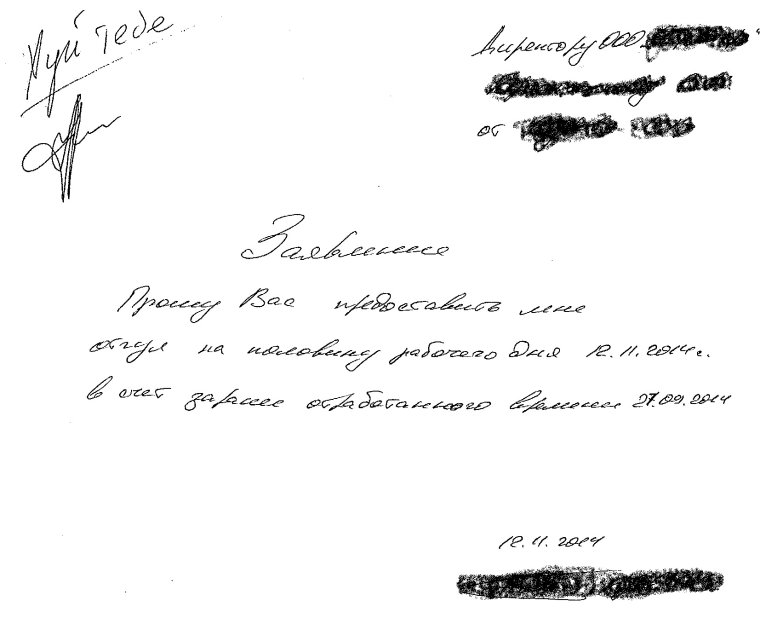 Хуй тебе
Директору ООО
от
Заявление
Прошу Вас предоставить мне
отгул на половину рабочего дня 12.11.2014г.
в счет заранее отработанного времени 27.09.2014
12.11.2014